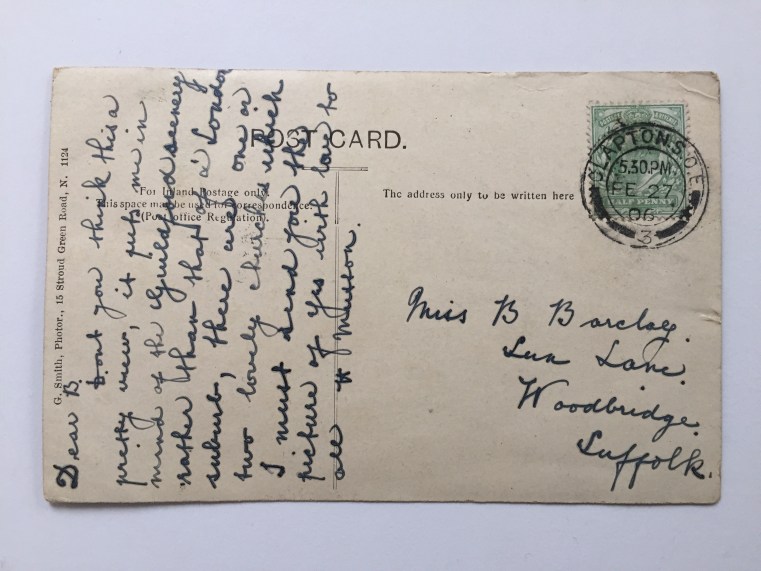 POST CARD.
For Inland Postage only.
This space may be used for correspondence.
(Post office Regulation).
The address only to be written here
G. Smith, Photor., 15 Stroud Green Road, N. 1124
CLAPTON S.O.E.
5.30.PM.
FE 27
06
3
HALF PENNY
Dear B
Dont you think this a
pretty view, it puts me in
mind of the Guildford scenery
rather than that of a London
suburb, there are one or
two lovely churches which
I must send you the
picture of yes with love to
all
Miss B Barclay.
Sun Lane.
Woodbridge.
Suffolk.